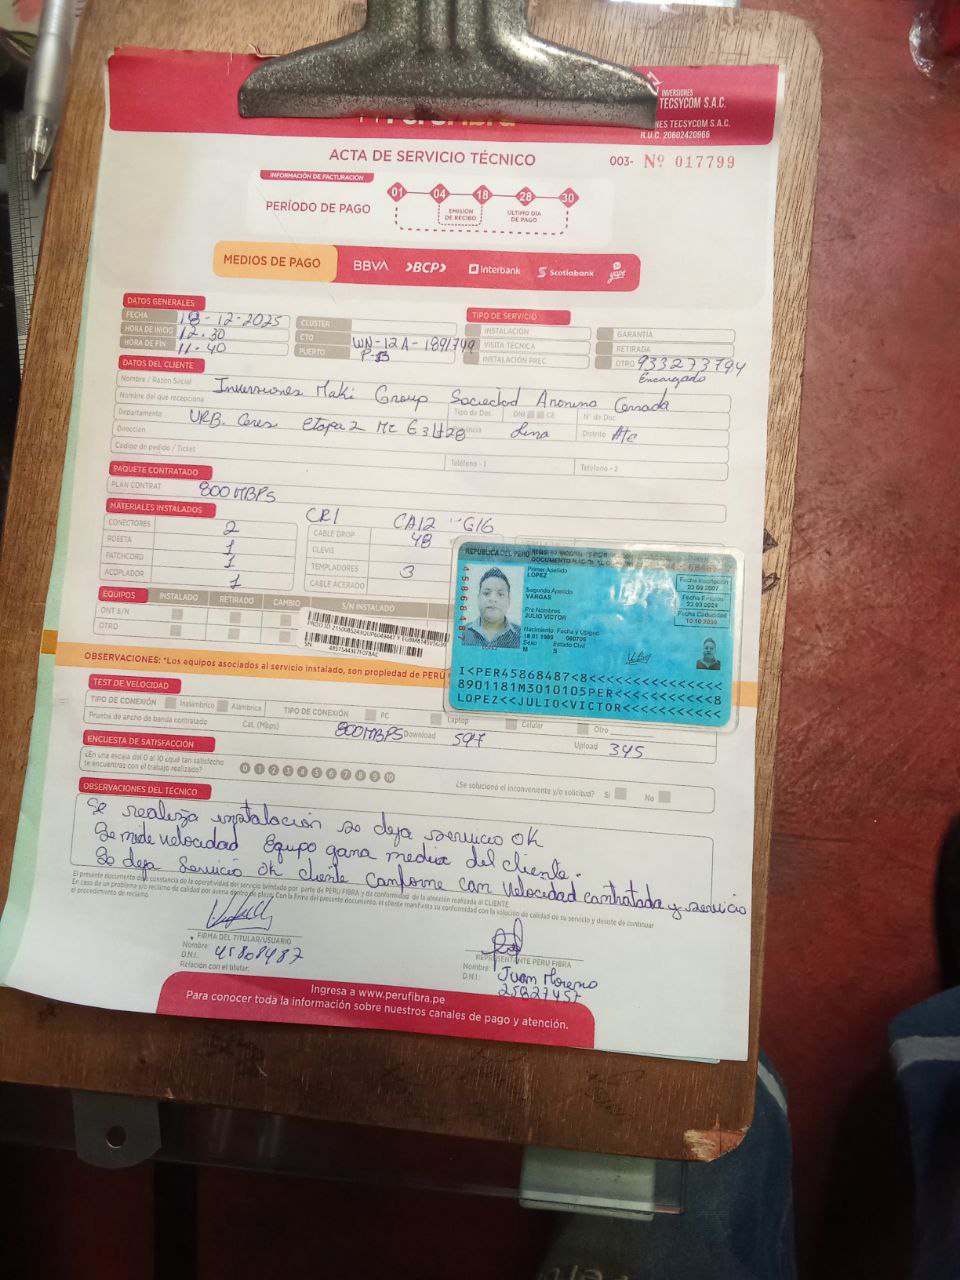 INVERSIONES
TECSYCOM S.A.C.
NES TECSYCOM S.A.C.
R.U.C. 20602420966
ACTA DE SERVICIO TÉCNICO
003- Nº 017799
INFORMACIÓN DE FACTURACIÓN
PERÍODO DE PAGO
01 04 18 28 30
EMISIÓN DE RECIBO
ULTIMO DÍA DE PAGO
MEDIOS DE PAGO
BBVA BCP Interbank Scotiabank yape
DATOS GENERALES
FECHA 18-12-2025
HORA DE INICIO 12.30
HORA DE FIN 11.40
CLUSTER
CTO WN-12A-1891749
PUERTO
TIPO DE SERVICIO
INSTALACIÓN
VISITA TÉCNICA
INSTALACIÓN PREC.
GARANTÍA
RETIRADA
OTRO 933273794
Encargado
DATOS DEL CLIENTE
Nombre / Razon Social Inversiones Maki Group Sociedad Anonima Cerrada
Nombre del que recepciona
Tipo de Doc. DNI CE N° de Doc.
Departamento
Provincia Lima Distrito Ate
Dirección URB. Ceres Etapa 2 Mz G3 Lt 28
Código de pedido / Ticket
Teléfono - 1 Teléfono - 2
PAQUETE CONTRATADO
PLAN CONTRAT 800 MBPS
MATERIALES INSTALADOS
CR1 CA12 G16
CONECTORES 2
ROSETA 1
PATCHCORD 1
ACOPLADOR 1
CABLE DROP 48
CLEVIS
TEMPLADORES 3
CABLE ACERADO
EQUIPOS INSTALADO RETIRADO CAMBIO S/N INSTALADO
ONT S/N
OTRO
OBSERVACIONES: *Los equipos asociados al servicio instalado, son propiedad de PERÚ
REPÚBLICA DEL PERÚ
Primer Apellido
LOPEZ
Segundo Apellido
VARGAS
Pre Nombres
JULIO VICTOR
Nacimiento: Fecha y Ubigeo
18 01 1989
Sexo Estado Civil
M S
Fecha Inscripción
Fecha Emisión
Fecha Caducidad
10 10 2030
45868487
I<PER45868487<8<<<<<<<<<<<<<<<
8901181M3010105PER<<<<<<<<<<<8
LOPEZ<<JULIO<VICTOR<<<<<<<<<<<
TEST DE VELOCIDAD
TIPO DE CONEXIÓN Inalámbrico Alámbrica TIPO DE CONEXIÓN PC Laptop Celular Otro
Prueba de ancho de banda contratado Cat. (Mbps) 800 MBPS Download 597 Upload 345
ENCUESTA DE SATISFACCIÓN
¿En una escala del 0 al 10 ¿qué tan satisfecho
te encuentras con el trabajo realizado?
0 1 2 3 4 5 6 7 8 9 10
¿Se solucionó el inconveniente y/o solicitud? Si No
OBSERVACIONES DEL TÉCNICO
Se realiza instalación se deja servicio OK
Se mide velocidad Equipo gama media del cliente.
Se deja Servicio OK cliente Conforme con Velocidad contratada y servicio
El presente documento deja constancia de la operatividad del servicio brindado por parte de PERU FIBRA y da conformidad de la atención realizada al CLIENTE
FIRMA DEL TITULAR/USUARIO
Nombre:
D.N.I.: 45868487
Relación con el titular:
REPRESENTANTE PERU FIBRA
Nombre: Juan Moreno
D.N.I.: 25827457
Ingresa a www.perufibra.pe
Para conocer toda la información sobre nuestros canales de pago y atención.